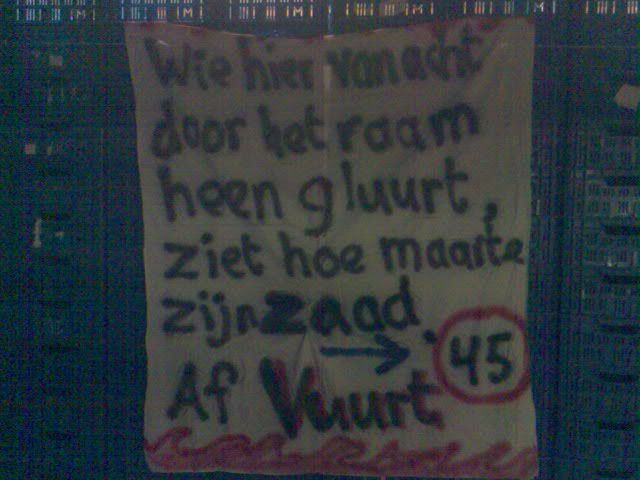 Wie hier vanacht
door het raam
heen gluurt,
ziet hoe maarte
zijn zaad.
→ 45
Af Vuurt